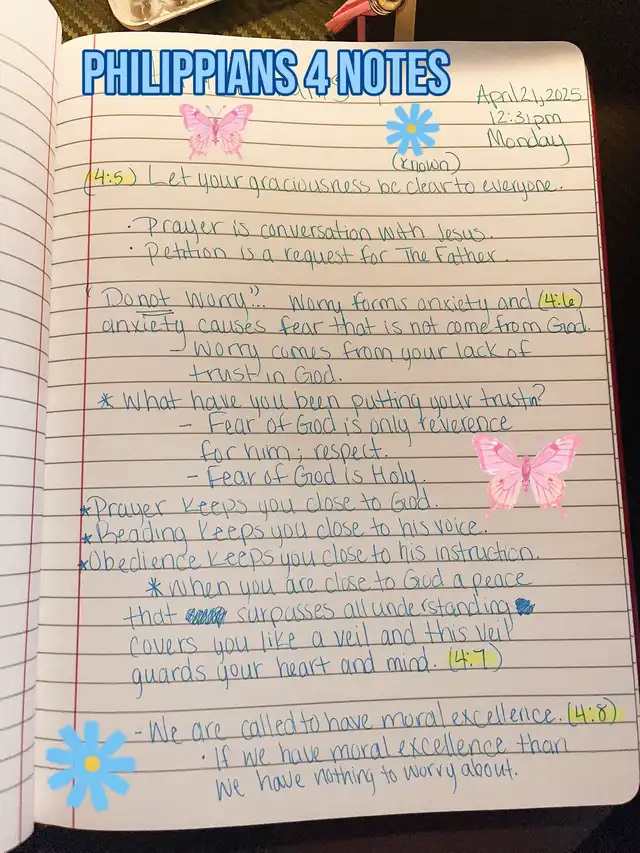 PHILIPPIANS 4 NOTES
April 21, 2025
12:31pm
Monday
(known)
(4:5) Let your graciousness be clear to everyone.
· Prayer is conversation with Jesus.
· Petition is a request for The Father.
"Do not worry"... Worry forms anxiety and (4:6)
anxiety causes fear that is not come from God.
- Worry comes from your lack of
trust in God.
* What have you been putting your trust in?
- Fear of God is only reverence
for him; respect.
- Fear of God is Holy.
*Prayer keeps you close to God.
*Reading keeps you close to his voice.
*Obedience keeps you close to his instruction.
*When you are close to God a peace
that surpasses all understanding
covers you like a veil and this veil
guards your heart and mind. (4:7)
- We are called to have moral excellence. (4:8)
· If we have moral excellence than
we have nothing to worry about.